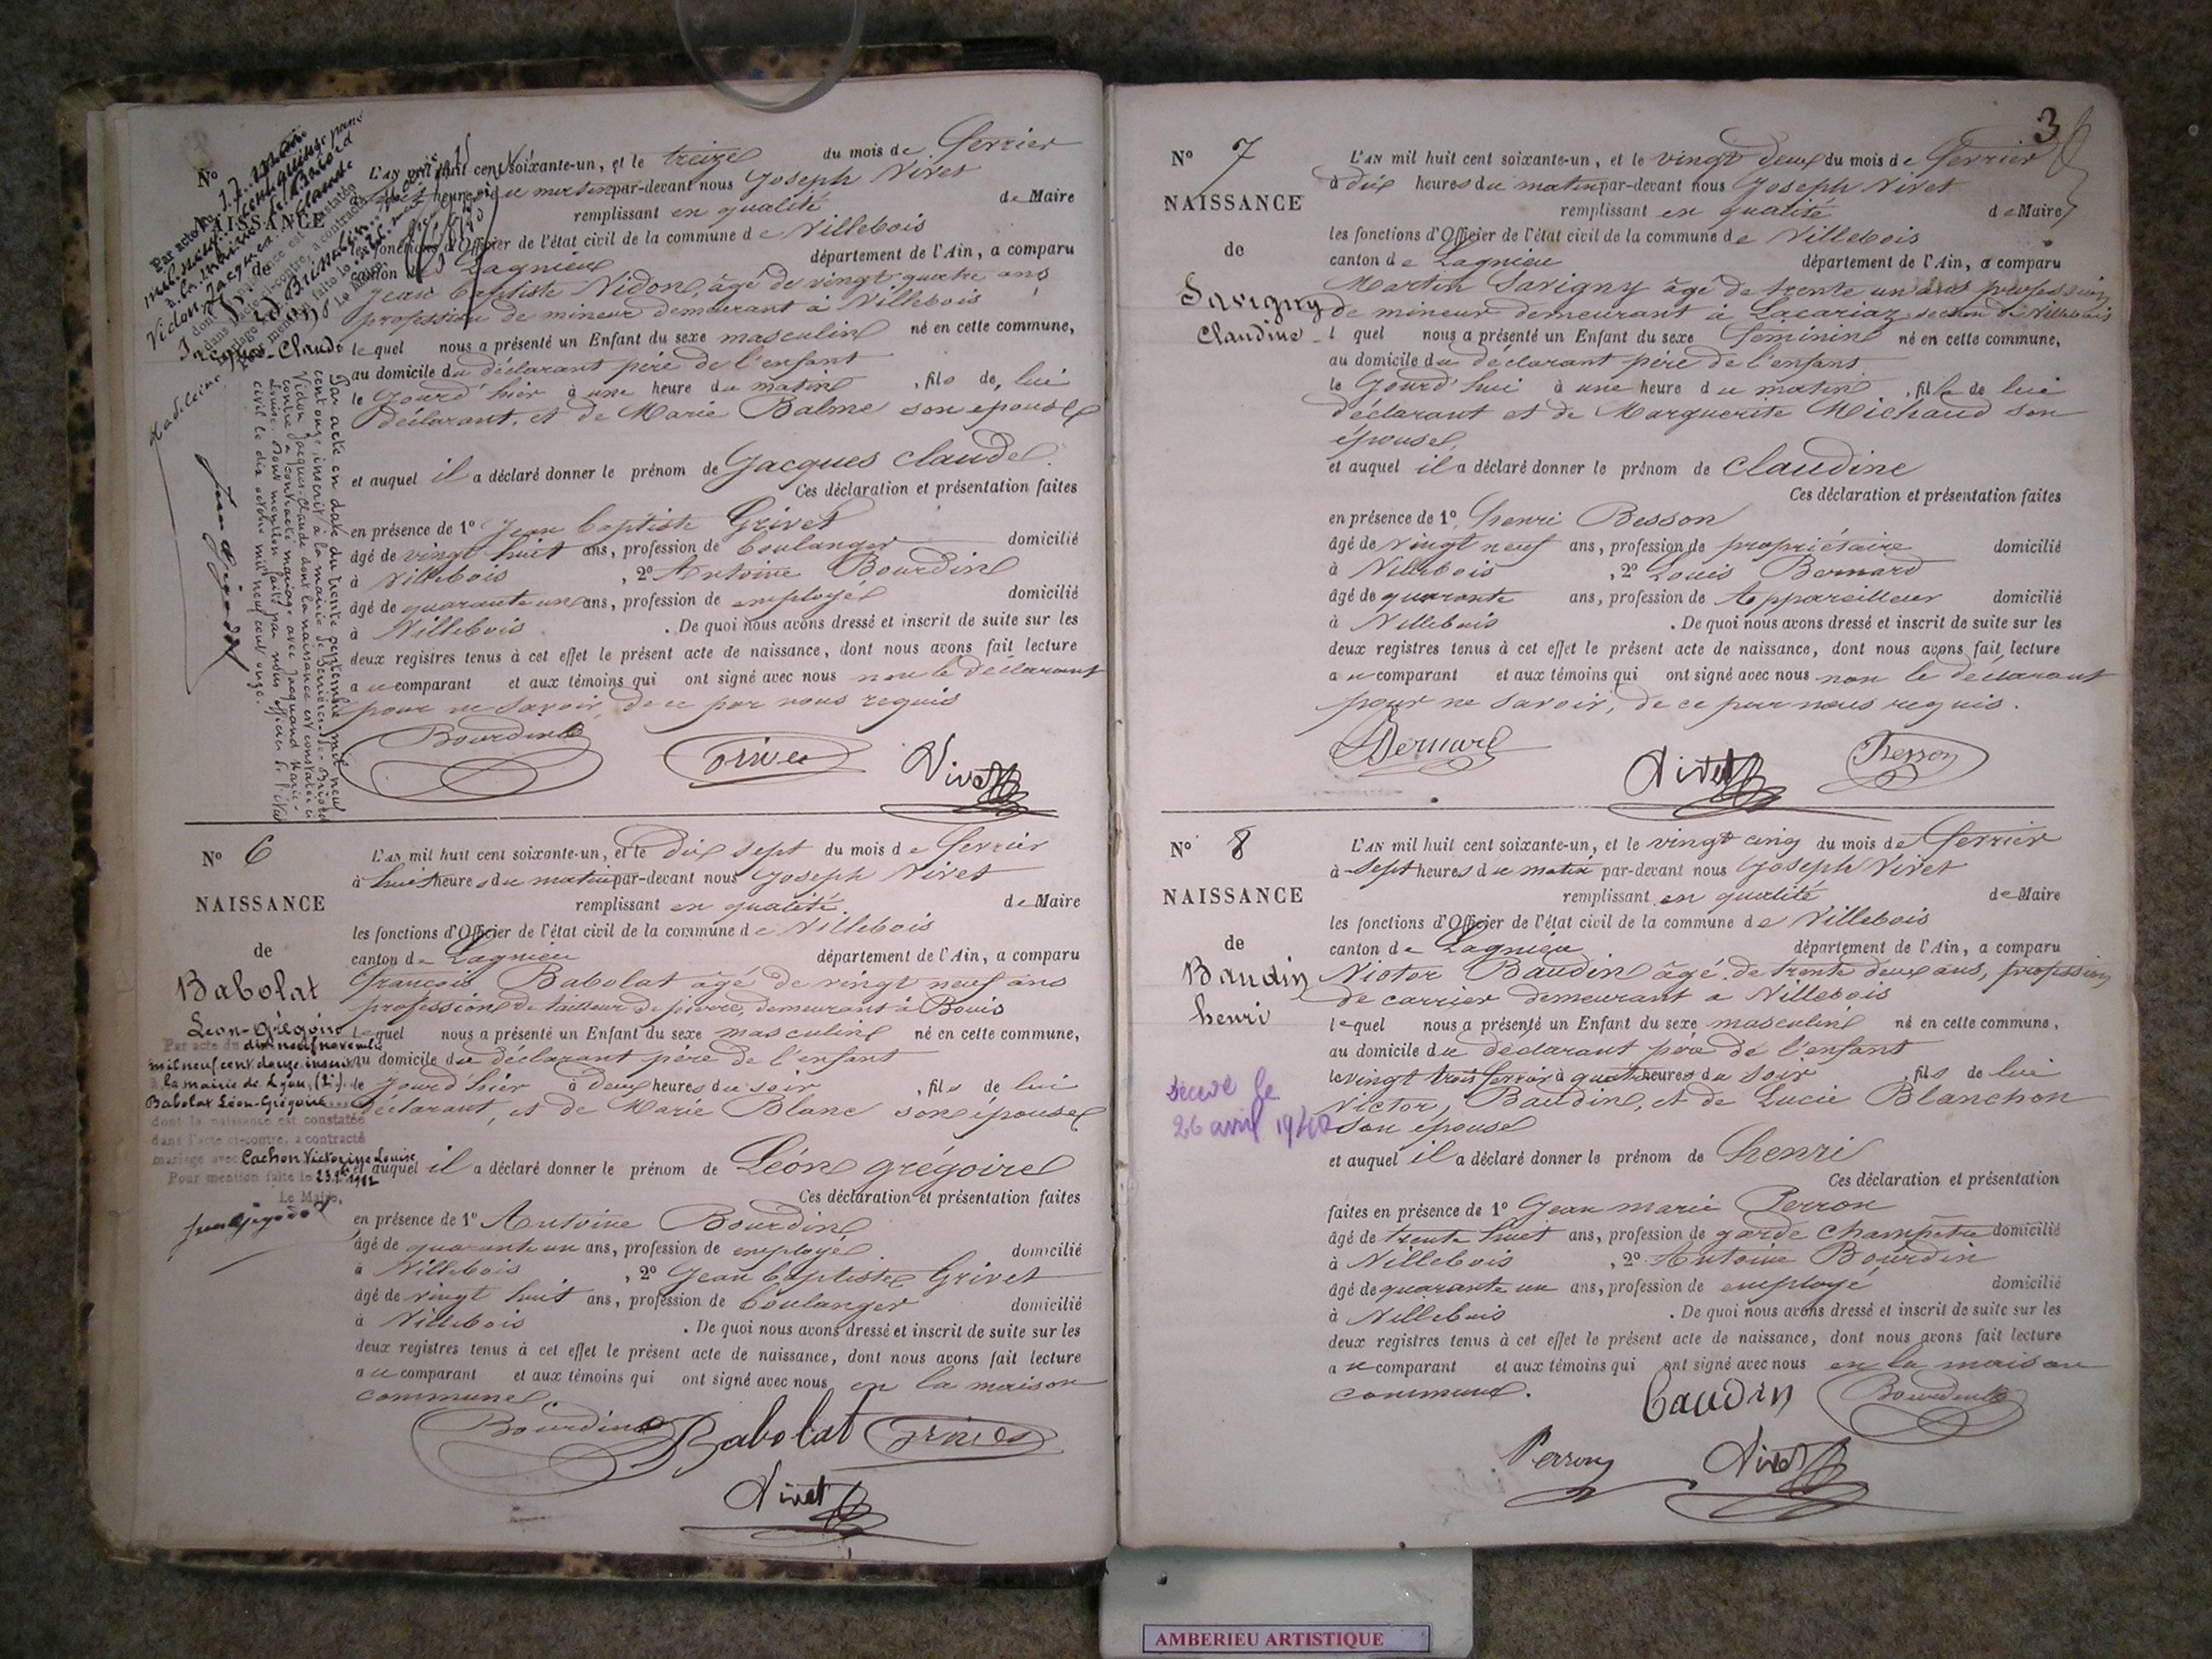 L'AN mil huit cent soixante-un, et le treize du mois de fevrier
heures du matin par-devant nous Joseph Vivet
remplissant en qualité de Maire
les fonctions d'Officier de l'état civil de la commune de Villebois
canton de Lagnieu département de l'Ain, a comparu
Jean Baptiste Vidon, âgé de vingt quatre ans
profession de mineur demeurant à Villebois
lequel nous a présenté un Enfant du sexe masculin né en cette commune,
au domicile du déclarant père de l'enfant
le jourd'hier à une heure du matin, fils de lui
déclarant, et de Marie Balme son épouse
et auquel il a déclaré donner le prénom de Jacques Claude.
Ces déclaration et présentation faites
en présence de 1º Jean Baptiste Grivet
âgé de vingt huit ans, profession de boulanger domicilié
à Villebois, 2º Antoine Bourdin
âgé de quarante un ans, profession de employé domicilié
à Villebois. De quoi nous avons dressé et inscrit de suite sur les
deux registres tenus à cet effet le présent acte de naissance, dont nous avons fait lecture
au comparant et aux témoins qui ont signé avec nous non le déclarant
pour ne savoir, de ce par nous requis
Bourdin Grivet Vivet
Par acte en date du trente septembre mil neuf
cent onze, inscrit à la mairie de
Vidon Jacques-Claude dont la naissance est constatée ci
contre a contracté mariage avec Jacquand Marie-
Louise. Dont mention faite par nous officier de l'état
civil le dix octobre mil neuf cent onze.
Nº 6
NAISSANCE
de
Babolat
Léon-Grégoire
L'AN mil huit cent soixante-un, et le dix sept du mois de fevrier
à huit heures du matin par-devant nous Joseph Vivet
remplissant en qualité de Maire
les fonctions d'Officier de l'état civil de la commune de Villebois
canton de Lagnieu département de l'Ain, a comparu
françois Babolat âgé de vingt neuf ans
profession de tailleur de pierre, demeurant à Bouis
lequel nous a présenté un Enfant du sexe masculin né en cette commune,
au domicile du déclarant père de l'enfant
le jourd'hier à deux heures du soir, fils de lui
déclarant, et de Marie Blanc son épouse
et auquel il a déclaré donner le prénom de Léon grégoire
Ces déclaration et présentation faites
en présence de 1º Antoine Bourdin
âgé de quarante un ans, profession de employé domicilié
à Villebois, 2º Jean Baptiste Grivet
âgé de vingt huit ans, profession de boulanger domicilié
à Villebois. De quoi nous avons dressé et inscrit de suite sur les
deux registres tenus à cet effet le présent acte de naissance, dont nous avons fait lecture
au comparant et aux témoins qui ont signé avec nous en la maison
commune.
Bourdin Babolat Grivet
Vivet
Par acte du dix neuf novembre
mil neuf cent douze inscrit
à la mairie de Lyon,
Babolat Léon-Grégoire
dont la naissance est constatée
dans l'acte ci-contre, a contracté
mariage avec Cachon Victorine Louise
Pour mention faite le 1912
Le Maire,
3
Nº 7
NAISSANCE
de
Savigny
Claudine
L'AN mil huit cent soixante-un, et le vingt deux du mois de fevrier
à dix heures du matin par-devant nous Joseph Vivet
remplissant en qualité de Maire
les fonctions d'Officier de l'état civil de la commune de Villebois
canton de Lagnieu département de l'Ain, a comparu
Martin Savigny âgé de trente un ans profession
de mineur demeurant à Lacariaz section de Villebois
l quel nous a présenté un Enfant du sexe feminin né en cette commune,
au domicile du déclarant père de l'enfant
le jourd'hui à une heure du matin, fille de lui
déclarant et de Marguerite Michaud son
épouse
et auquel il a déclaré donner le prénom de Claudine
Ces déclaration et présentation faites
en présence de 1º henri Besson
âgé de vingt neuf ans, profession de propriétaire domicilié
à Villebois, 2º Louis Bernard
âgé de quarante ans, profession de Appareilleur domicilié
à Villebois. De quoi nous avons dressé et inscrit de suite sur les
deux registres tenus à cet effet le présent acte de naissance, dont nous avons fait lecture
au comparant et aux témoins qui ont signé avec nous non le déclarant
pour ne savoir, de ce par nous requis.
Bernard Vivet Besson
Nº 8
NAISSANCE
de
Baudin
henri
L'AN mil huit cent soixante-un, et le vingt cinq du mois de fevrier
à sept heures du matin par-devant nous Joseph Vivet
remplissant en qualité de Maire
les fonctions d'Officier de l'état civil de la commune de Villebois
canton de Lagnieu département de l'Ain, a comparu
Victor Baudin âgé de trente deux ans, profession
de carrier demeurant a Villebois
lequel nous a présenté un Enfant du sexe masculin né en cette commune,
au domicile du déclarant père de l'enfant
le vingt trois fevrier à quatre heures du soir, fils de lui
Victor, Baudin, et de Lucie Blanchon
son épouse
et auquel il a déclaré donner le prénom de henri
Ces déclaration et présentation
faites en présence de 1º Jean marie Perron
âgé de trente huit ans, profession de garde champêtre domicilié
à Villebois, 2º Antoine Bourdin
âgé de quarante un ans, profession de employé domicilié
à Villebois. De quoi nous avons dressé et inscrit de suite sur les
deux registres tenus à cet effet le présent acte de naissance, dont nous avons fait lecture
au comparant et aux témoins qui ont signé avec nous en la maison
commune.
Baudin Bourdin
Perron Vivet
Décédé le
26 avril 1940
AMBERIEU ARTISTIQUE